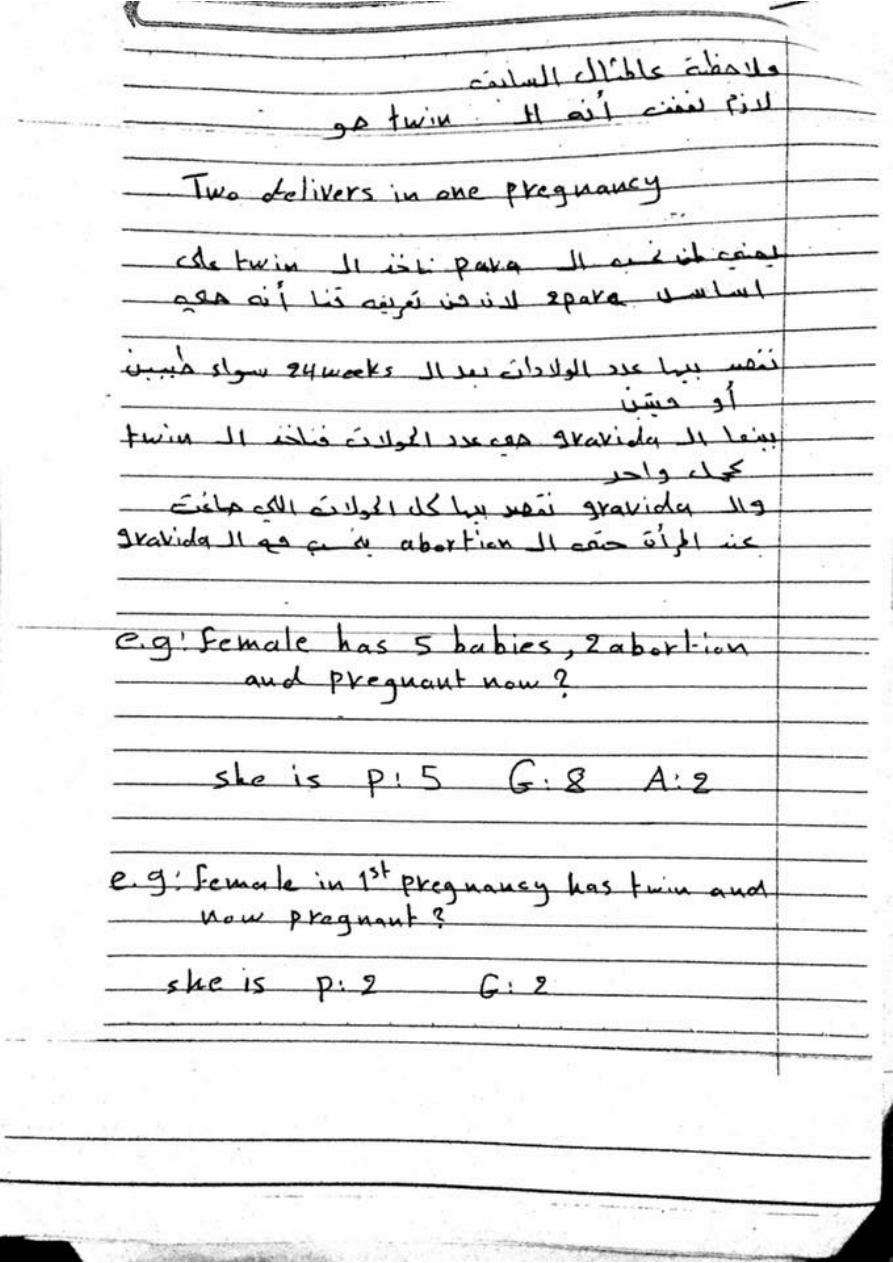 ملاحظة عالمثال السابق
لازم نعرف أنه الـ twin هو
Two delivers in one pregnancy
يعني لمن نحسب الـ para ناخذ الـ twin على
اساس 2para لانه في تعريفه قلنا أنه هي
نقصد بيها عدد الولادات بعد الـ 24weeks سواء طيبين
أو ميتين
بينما الـ gravida هي عدد الحملات فناخذ الـ twin
كحمل واحد
والـ gravida نقصد بيها كل الحملات اللي صارت
عند المرأة حتى الـ abortion يحسب مع الـ gravida
e.g: female has 5 babies, 2 abortion
and pregnant now ?
she is P: 5 G: 8 A: 2
e.g: female in 1st pregnancy has twin and
now pregnant ?
she is p: 2 G: 2